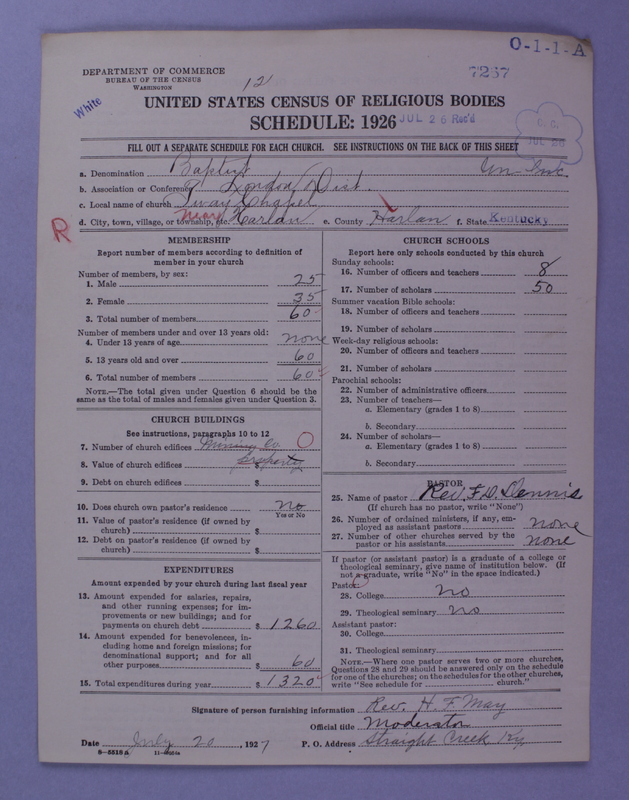 O-1-1-A
7267
DEPARTMENT OF COMMERCE
BUREAU OF THE CENSUS
WASHINGTON
12
White
UNITED STATES CENSUS OF RELIGIOUS BODIES
SCHEDULE: 1926
JUL 26 Rec'd
JUL 26
FILL OUT A SEPARATE SCHEDULE FOR EACH CHURCH. SEE INSTRUCTIONS ON THE BACK OF THIS SHEET
a. Denomination Baptist
b. Association or Conference London Dist.
c. Local name of church Tway Chapel
d. City, town, village, or township, etc. near Harlan e. County Harlan f. State Kentucky
R
MEMBERSHIP
Report number of members according to definition of
member in your church
Number of members, by sex:
1. Male 25
2. Female 35
3. Total number of members 60
Number of members under and over 13 years old:
4. Under 13 years of age none
5. 13 years old and over 60
6. Total number of members 60
NOTE.—The total given under Question 6 should be the
same as the total of males and females given under Question 3.
CHURCH BUILDINGS
See instructions, paragraphs 10 to 12
7. Number of church edifices Mining Co. 0
8. Value of church edifices $ property
9. Debt on church edifices $
10. Does church own pastor's residence no
Yes or No
11. Value of pastor's residence (if owned by
church) $
12. Debt on pastor's residence (if owned by
church) $
EXPENDITURES
Amount expended by your church during last fiscal year
13. Amount expended for salaries, repairs,
and other running expenses; for im-
provements or new buildings; and for
payments on church debt $ 1260
14. Amount expended for benevolences, in-
cluding home and foreign missions; for
denominational support; and for all
other purposes $ 60
15. Total expenditures during year $ 1320
CHURCH SCHOOLS
Report here only schools conducted by this church
Sunday schools:
16. Number of officers and teachers 8
17. Number of scholars 50
Summer vacation Bible schools:
18. Number of officers and teachers
19. Number of scholars
Week-day religious schools:
20. Number of officers and teachers
21. Number of scholars
Parochial schools:
22. Number of administrative officers
23. Number of teachers—
a. Elementary (grades 1 to 8)
b. Secondary
24. Number of scholars—
a. Elementary (grades 1 to 8)
b. Secondary
PASTOR
25. Name of pastor Rev. F. D. Dennis
(If church has no pastor, write "None")
26. Number of ordained ministers, if any, em-
ployed as assistant pastors none
27. Number of other churches served by the
pastor or his assistants none
If pastor (or assistant pastor) is a graduate of a college or
theological seminary, give name of institution below. (If
not a graduate, write "No" in the space indicated.)
Pastor:
28. College no
29. Theological seminary no
Assistant pastor:
30. College
31. Theological seminary
NOTE.—Where one pastor serves two or more churches,
Questions 28 and 29 should be answered only on the schedule
for one of the churches; on the schedules for the other churches,
write "See schedule for church."
Signature of person furnishing information Rev. H. F. May
Official title Moderator
Date July 20, 1927 P. O. Address Straight Creek Ky.
8-5318 a